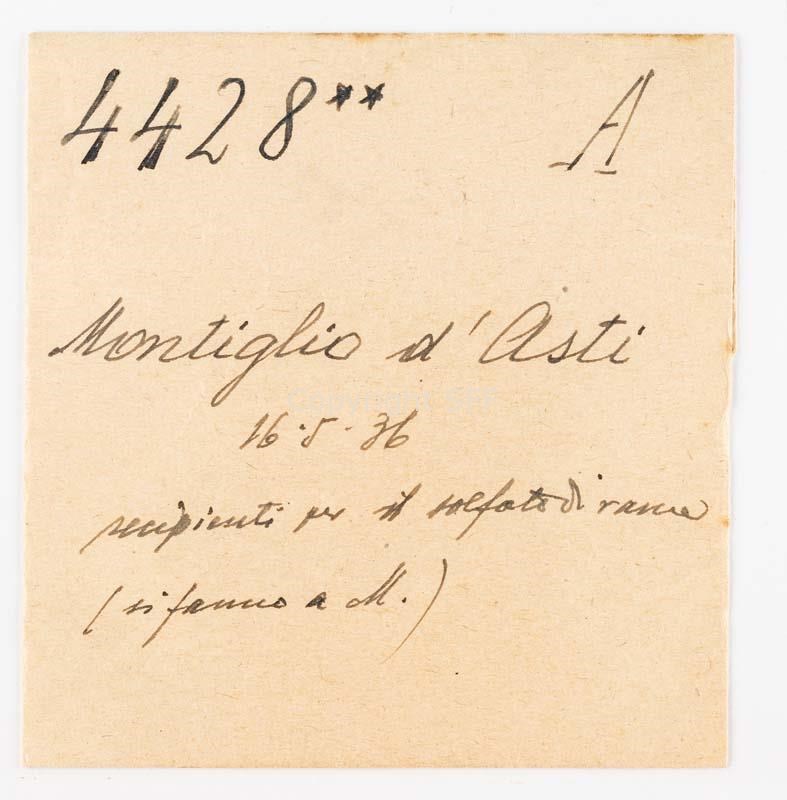 4428** A
Montiglio d'Asti
16.5.36
recipienti per il solfato di rame
(si fanno a M.)